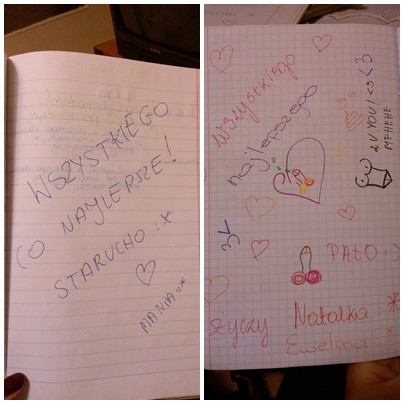 WSZYSTKIEGO
CO NAJLEPSZE!
STARUCHO :*
MANIA =*
Wszystkiego
najlepszego
LUV YOU! <3 <3
MEHEHE
PAŁO :)
życzy Natalka :*
Ewelina